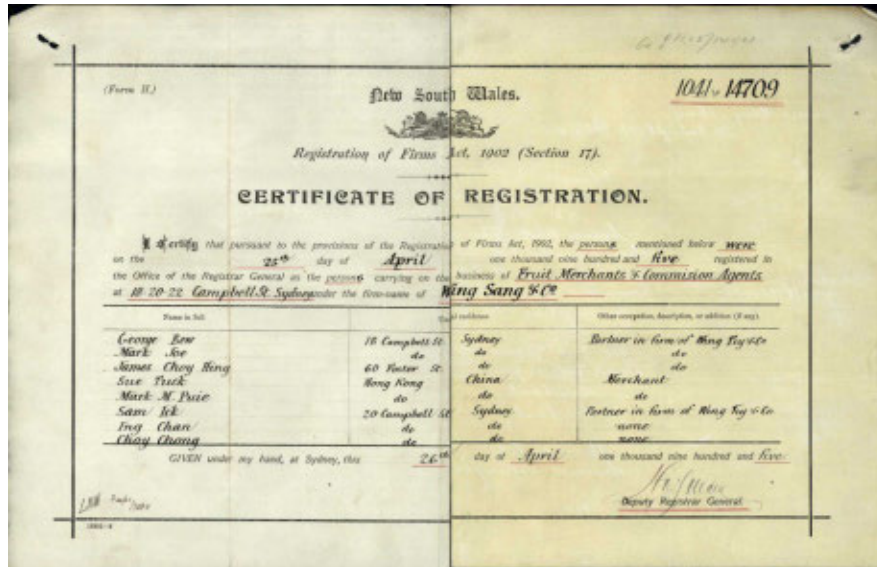 (Form II.)
New South Wales.
1041 14709
Registration of Firms Act, 1902 (Section 17).
CERTIFICATE OF REGISTRATION.
I Certify that pursuant to the provisions of the Registration of Firms Act, 1902, the persons mentioned below were
on the 25th day of April one thousand nine hundred and five registered in
the Office of the Registrar General as the persons carrying on the business of Fruit Merchants & Commision Agents
at 18-20-22 Campbell St Sydney under the firm-name of Wing Sang & Co
Name in full. residence. Other occupation, description, or addition (if any).
George Bew 18 Campbell St Sydney Partner in firm of Wing & Co
Mark Joe do do do
James Choy Hing 60 Foster St do do
Sue Tuck Hong Kong China Merchant
Mark M. Puie do do do
Sam Ick 20 Campbell St Sydney Partner in firm of Wing & Co
Ing Chan do do none
Choy Chong do do none
GIVEN under my hand, at Sydney, this 26th day of April one thousand nine hundred and five.
Deputy Registrar General.